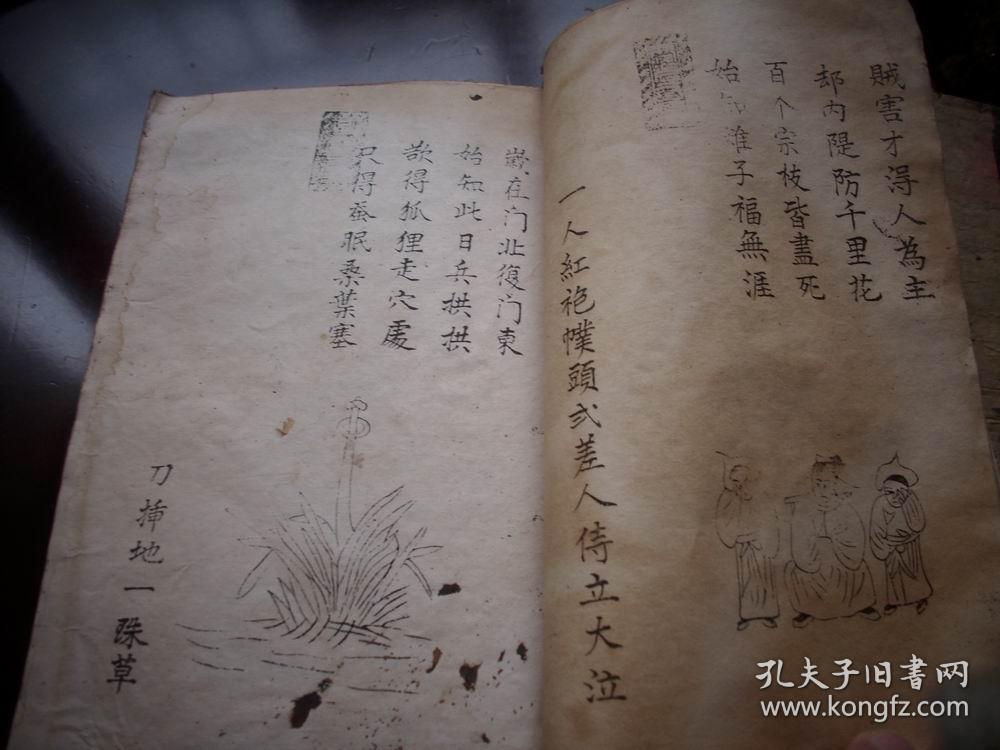 賊害才淂人為主
却内隄防千里花
百个宗枝皆盡死
始知雅子福無涯
一人紅袍幞頭弍差人侍立大泣
歲在门北復门東
始知此日兵拱拱
欲得狐狸走穴處
只得蚕眠桑葉塞
刀揷地一珠草
孔夫子旧書网
www.kongfz.com